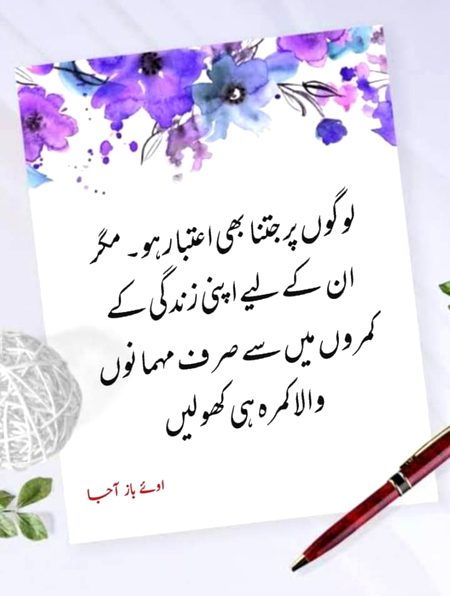 لوگوں پر جتنا بھی اعتبار ہو۔ مگر
ان کے لیے اپنی زندگی کے
کمروں میں سے صرف مہمانوں
والا کمرہ ہی کھولیں
اوئے باز آجا